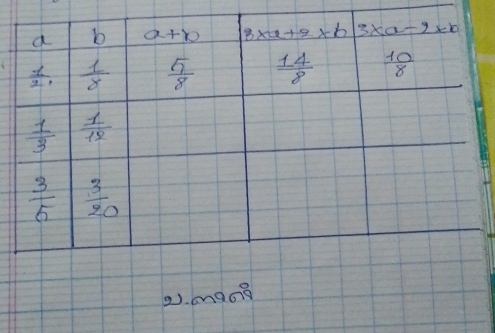 a b a+b 3×a+2×b 3×a-2×b
1/2 1/8 5/8 14/8 10/8
1/3 1/12
3/5 3/20